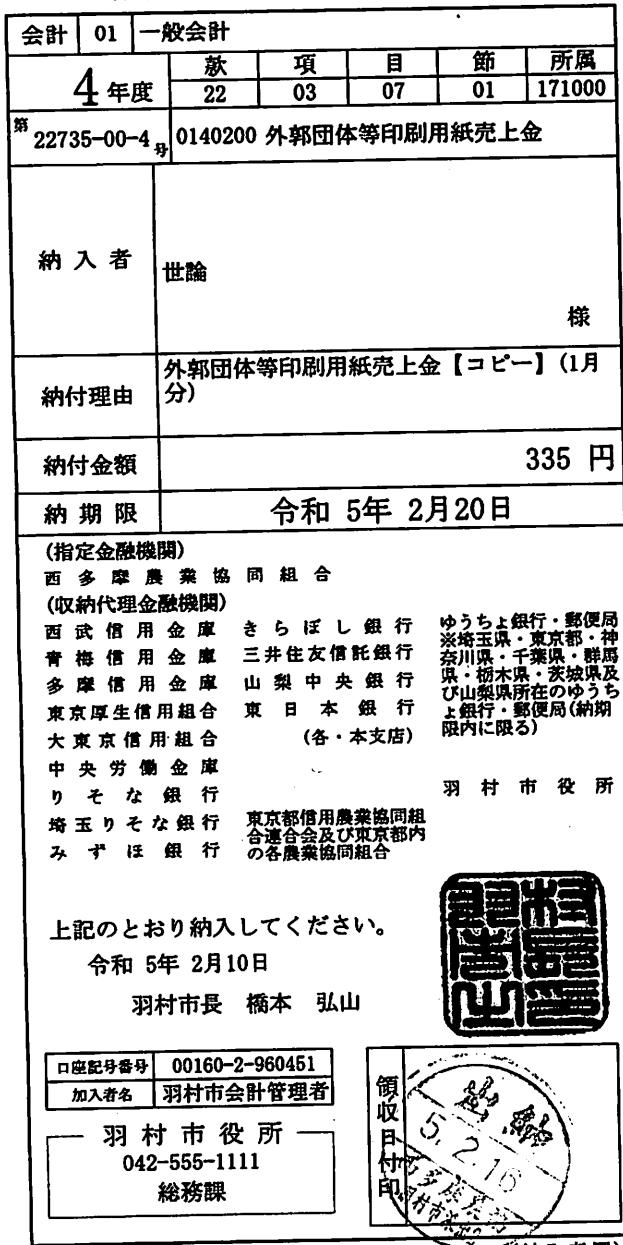 会計 01 一般会計
4年度 款 項 目 節 所属
22 03 07 01 171000
第22735-00-4号 0140200 外郭団体等印刷用紙売上金
納入者 世論
様
納付理由 外郭団体等印刷用紙売上金【コピー】(1月
分)
納付金額 335 円
納期限 令和 5年 2月20日
(指定金融機関)
西多摩農業協同組合
(収納代理金融機関)
西武信用金庫
青梅信用金庫
多摩信用金庫
東京厚生信用組合
大東京信用組合
中央労働金庫
りそな銀行
埼玉りそな銀行
みずほ銀行
きらぼし銀行
三井住友信託銀行
山梨中央銀行
東日本銀行
(各・本支店)
東京都信用農業協同組
合連合会及び東京都内
の各農業協同組合
ゆうちょ銀行・郵便局
※埼玉県・東京都・神
奈川県・千葉県・群馬
県・栃木県・茨城県及
び山梨県所在のゆうち
ょ銀行・郵便局(納期
限内に限る)
羽村市役所
上記のとおり納入してください。
令和 5年 2月10日
羽村市長 橋本 弘山
口座記号番号 00160-2-960451
加入者名 羽村市会計管理者
羽村市役所
042-555-1111
総務課
領収日付印
出納
5.2.16